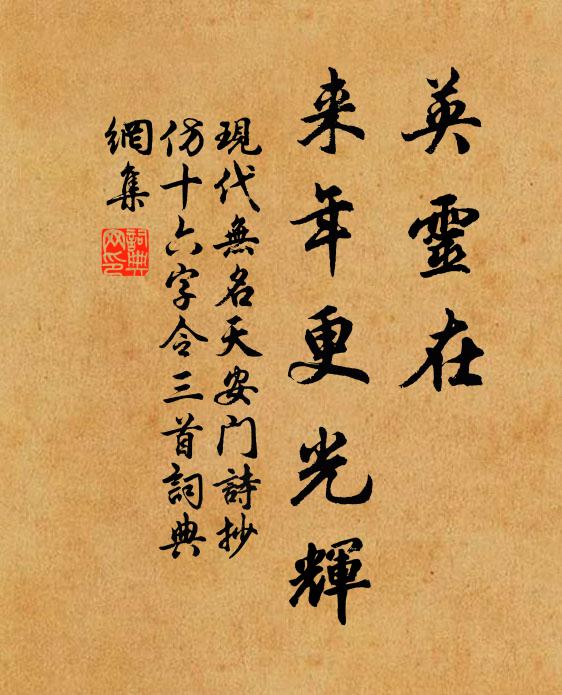 英靈在
来年更光輝
現代無名天安门詩抄
仿十六字令三首詞典
網集
詞典網印